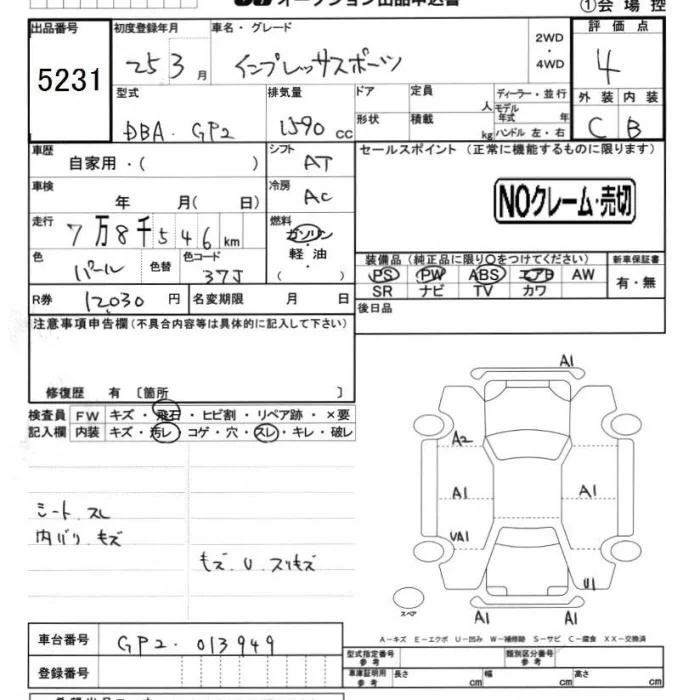 オークション出品申込書
①会場控
出品番号 初度登録年月 車名・グレード 2WD 評価点
5231 25 3月 インプレッサスポーツ ・4WD 4
型式 排気量 ドア 定員 人 ディーラー・並行 外装 内装
DBA・GP2 1590 cc 形状 積載 kg モデル年式 年 C B
ハンドル 左・右
車歴 シフト セールスポイント (正常に機能するものに限ります)
自家用・( ) AT
車検 冷房 NOクレーム・売切
年 月( 日) AC
走行 燃料
7万8千546km ガソリン
色 色替 色コード 軽・油 装備品(純正品に限り○をつけてください) 新車保証書
パール 37J ・( ) PS PW ABS エアB AW 有・無
SR ナビ TV カワ
R券 12,030円 名変期限 月 日 後日品
注意事項申告欄(不具合内容等は具体的に記入して下さい)
修復歴 有 〔箇所 〕
検査員 FW キズ・飛石・ヒビ割・リペア跡・×要
記入欄 内装 キズ・汚レ・コゲ・穴・スレ・キレ・破レ
A1
A2
A1 A1
UA1
U1
A1 A1
スペア
シート.スレ
内バリ.キズ
キズ.U.スリキズ
A-キズ E-エクボ U-凹み W-補修跡 S-サビ C-腐食 XX-交換済
車台番号 GP2-013949
型式指定番号 参考 類別区分番号 参考
登録番号 車庫証明用 参考 長さ cm 幅 cm 高さ cm